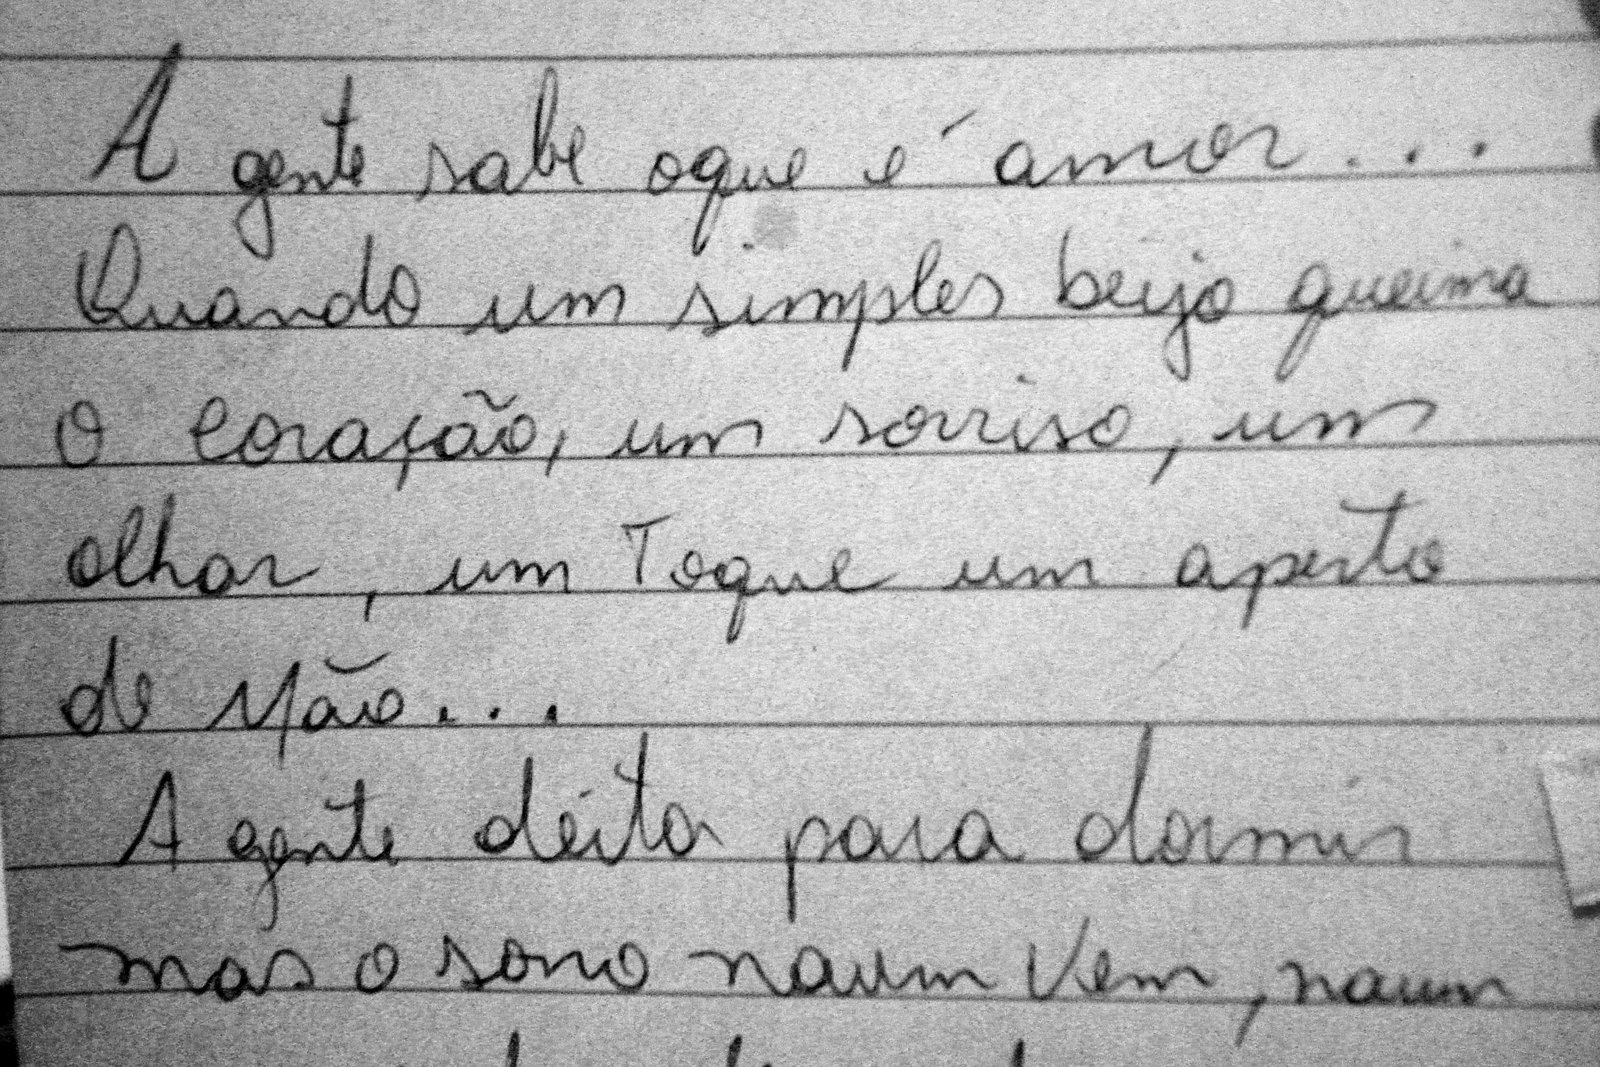 A gente sabe oque é amor...
Quando um simples beijo queima
o coração, um sorriso, um
olhar, um Toque um aperto
de Mão...
A gente deita para dormir
mas o sono naum Vem, naum